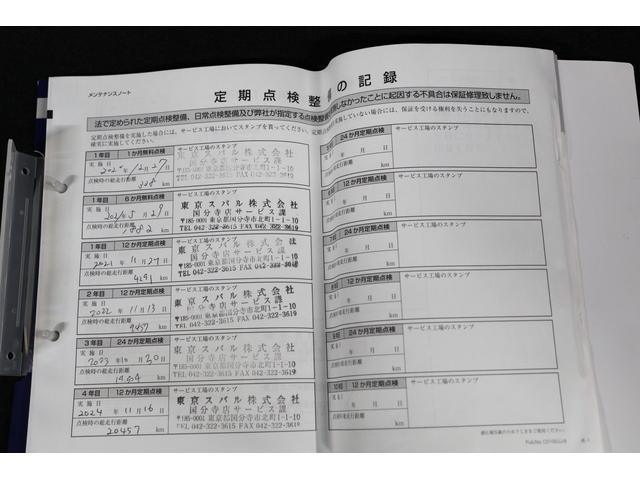 メンテナンスノート
定期点検整備の記録
法で定められた定期点検整備、日常点検整備及び弊社が指定する点検整備
しなかったことに起因する不具合は保証修理致しません。
定期点検整備を実施した場合には、サービス工場においてスタンプを貰ってください。
確実に実施してください。
していない場合には、保証を受ける権利を失うこともありますので、
1年目 1か月無料点検
サービス工場のスタンプ
実施日
年 2月27日
点検時の総走行距離
828 km
東京スバル株式会社
国分寺店サービス課
〒185-0001 東京都国分寺市北町1-1-10
TEL 042-322-3615 FAX 042-322-3619
1年目 6か月無料点検
サービス工場のスタンプ
実施日
2021年5月29日
点検時の総走行距離
1882 km
東京スバル株式会社
国分寺店サービス課
〒185-0001 東京都国分寺市北町1-1-10
TEL 042-322-3615 FAX 042-322-3619
1年目 12か月定期点検
サービス工場のスタンプ
実施日
2021年11月27日
点検時の総走行距離
4291 km
東京スバル株式会社
国分寺店サービス課
〒185-0001 東京都国分寺市北町1-1-10
TEL 042-322-3615 FAX 042-322-3619
2年目 12か月定期点検
サービス工場のスタンプ
実施日
2022年11月13日
点検時の総走行距離
9457 km
東京スバル株式会社
国分寺店サービス課
〒185-0001 東京都国分寺市北町1-1-10
TEL 042-322-3615 FAX 042-322-3619
3年目 24か月定期点検
サービス工場のスタンプ
実施日
2023年 月30日
点検時の総走行距離
km
東京スバル株式会社
国分寺店サービス課
〒185-0001 東京都国分寺市北町1-1-10
TEL 042-322-3615 FAX 042-322-3619
4年目 12か月定期点検
サービス工場のスタンプ
実施日
2024年11月16日
点検時の総走行距離
20457 km
東京スバル株式会社
国分寺店サービス課
〒185-0001 東京都国分寺市北町1-1-10
TEL 042-322-3615 FAX 042-322-3619
24か月定期点検
サービス工場のスタンプ
年 月 日
km
12か月定期点検
サービス工場のスタンプ
年 月 日
km
24か月定期点検
サービス工場のスタンプ
年 月 日
km
12か月定期点検
サービス工場のスタンプ
年 月 日
km
24か月定期点検
サービス工場のスタンプ
年 月 日
km
12か月定期点検
サービス工場のスタンプ
年 月 日
km